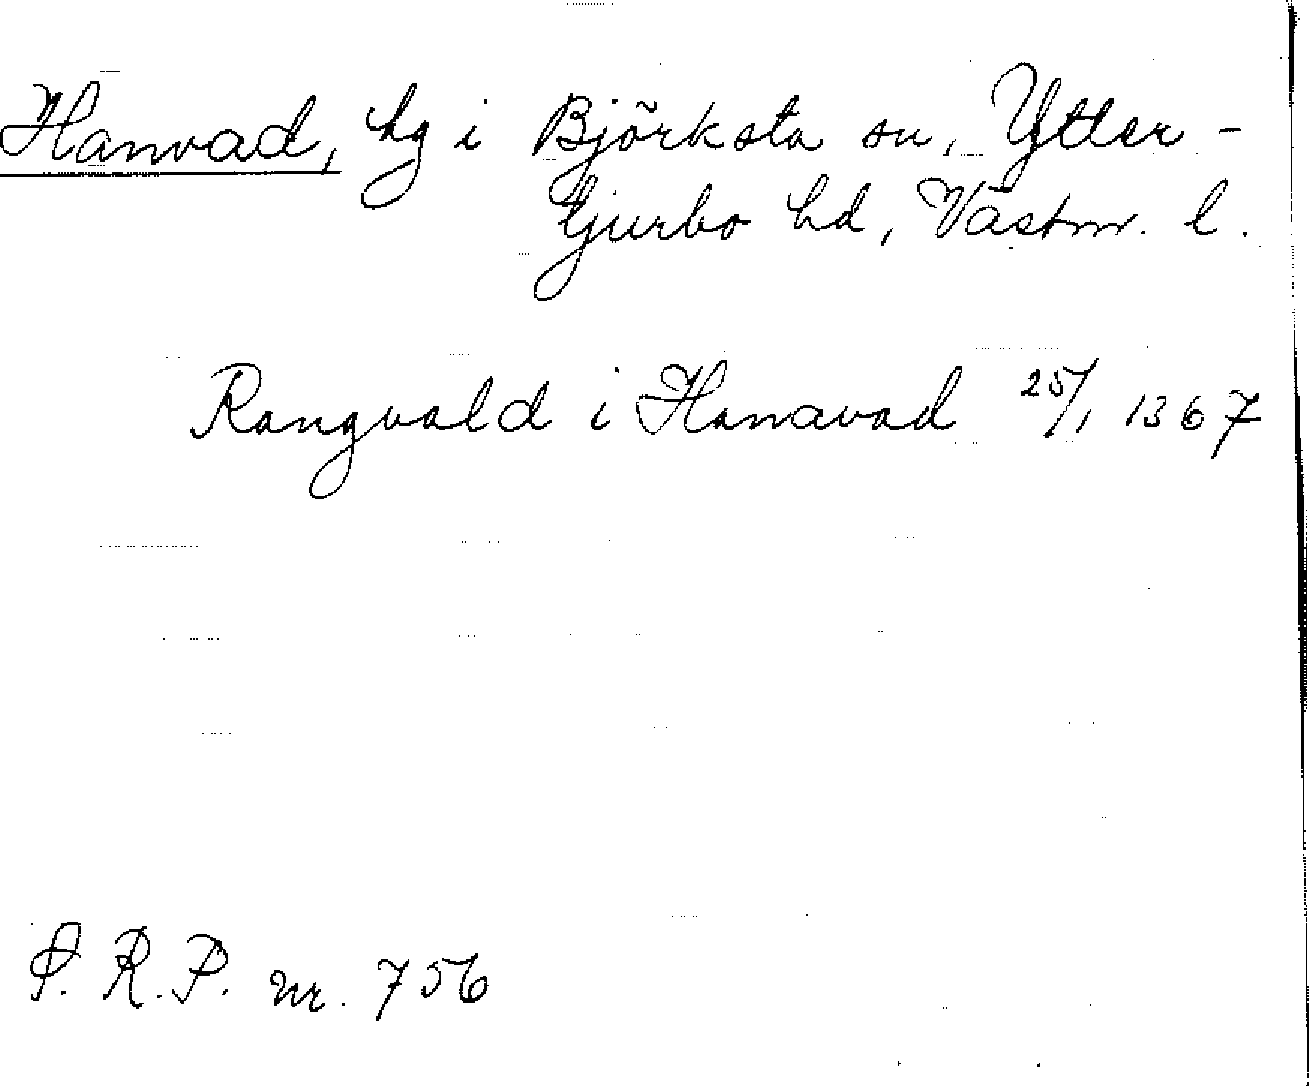 Hanvad, hg i Björksta sn, Ytter-
tjurbo hd, Västm. l.
Rangvald i Hanavad 25/1 1367
S. R. P. nr. 756